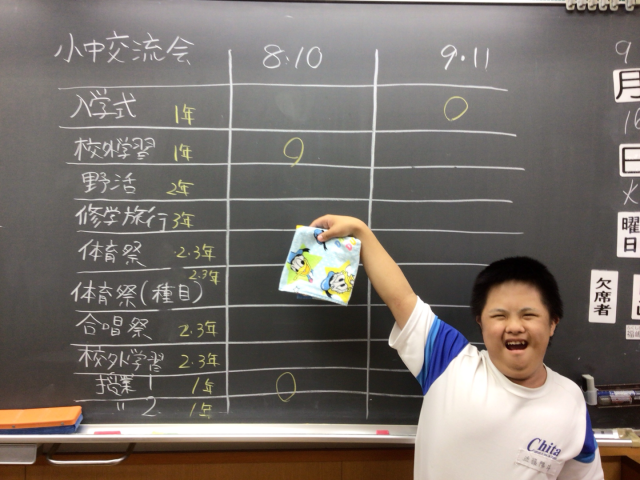 小中交流会 8・10 9・11
入学式 1年 ○
校外学習 1年 9
野活 2年
修学旅行 3年
体育祭 2・3年
体育祭(種目) 2・3年
合唱祭 2・3年
校外学習 2・3年
授業 1 1年 ○
〃 2 1年
9
月
日
火
曜日
欠席者
Chita